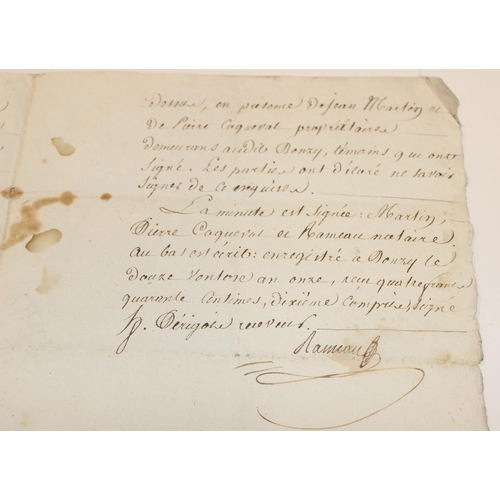 dessus, en présence de Jean Martin et
de Pierre Coqueval propriétaires
demeurans audit Donzy, témoins qui ont
signé. Les parties ont déclaré ne savoir
signer de ce enquises.
La minute est signée: Martin,
Pierre Coqueval et Rameau notaire.
au bas est écrit: enregistré à Donzy le
douze Ventose an onze, reçu quatre francs
quarante Centimes, dixième compris, signé
Périgois receveur.
Rameau